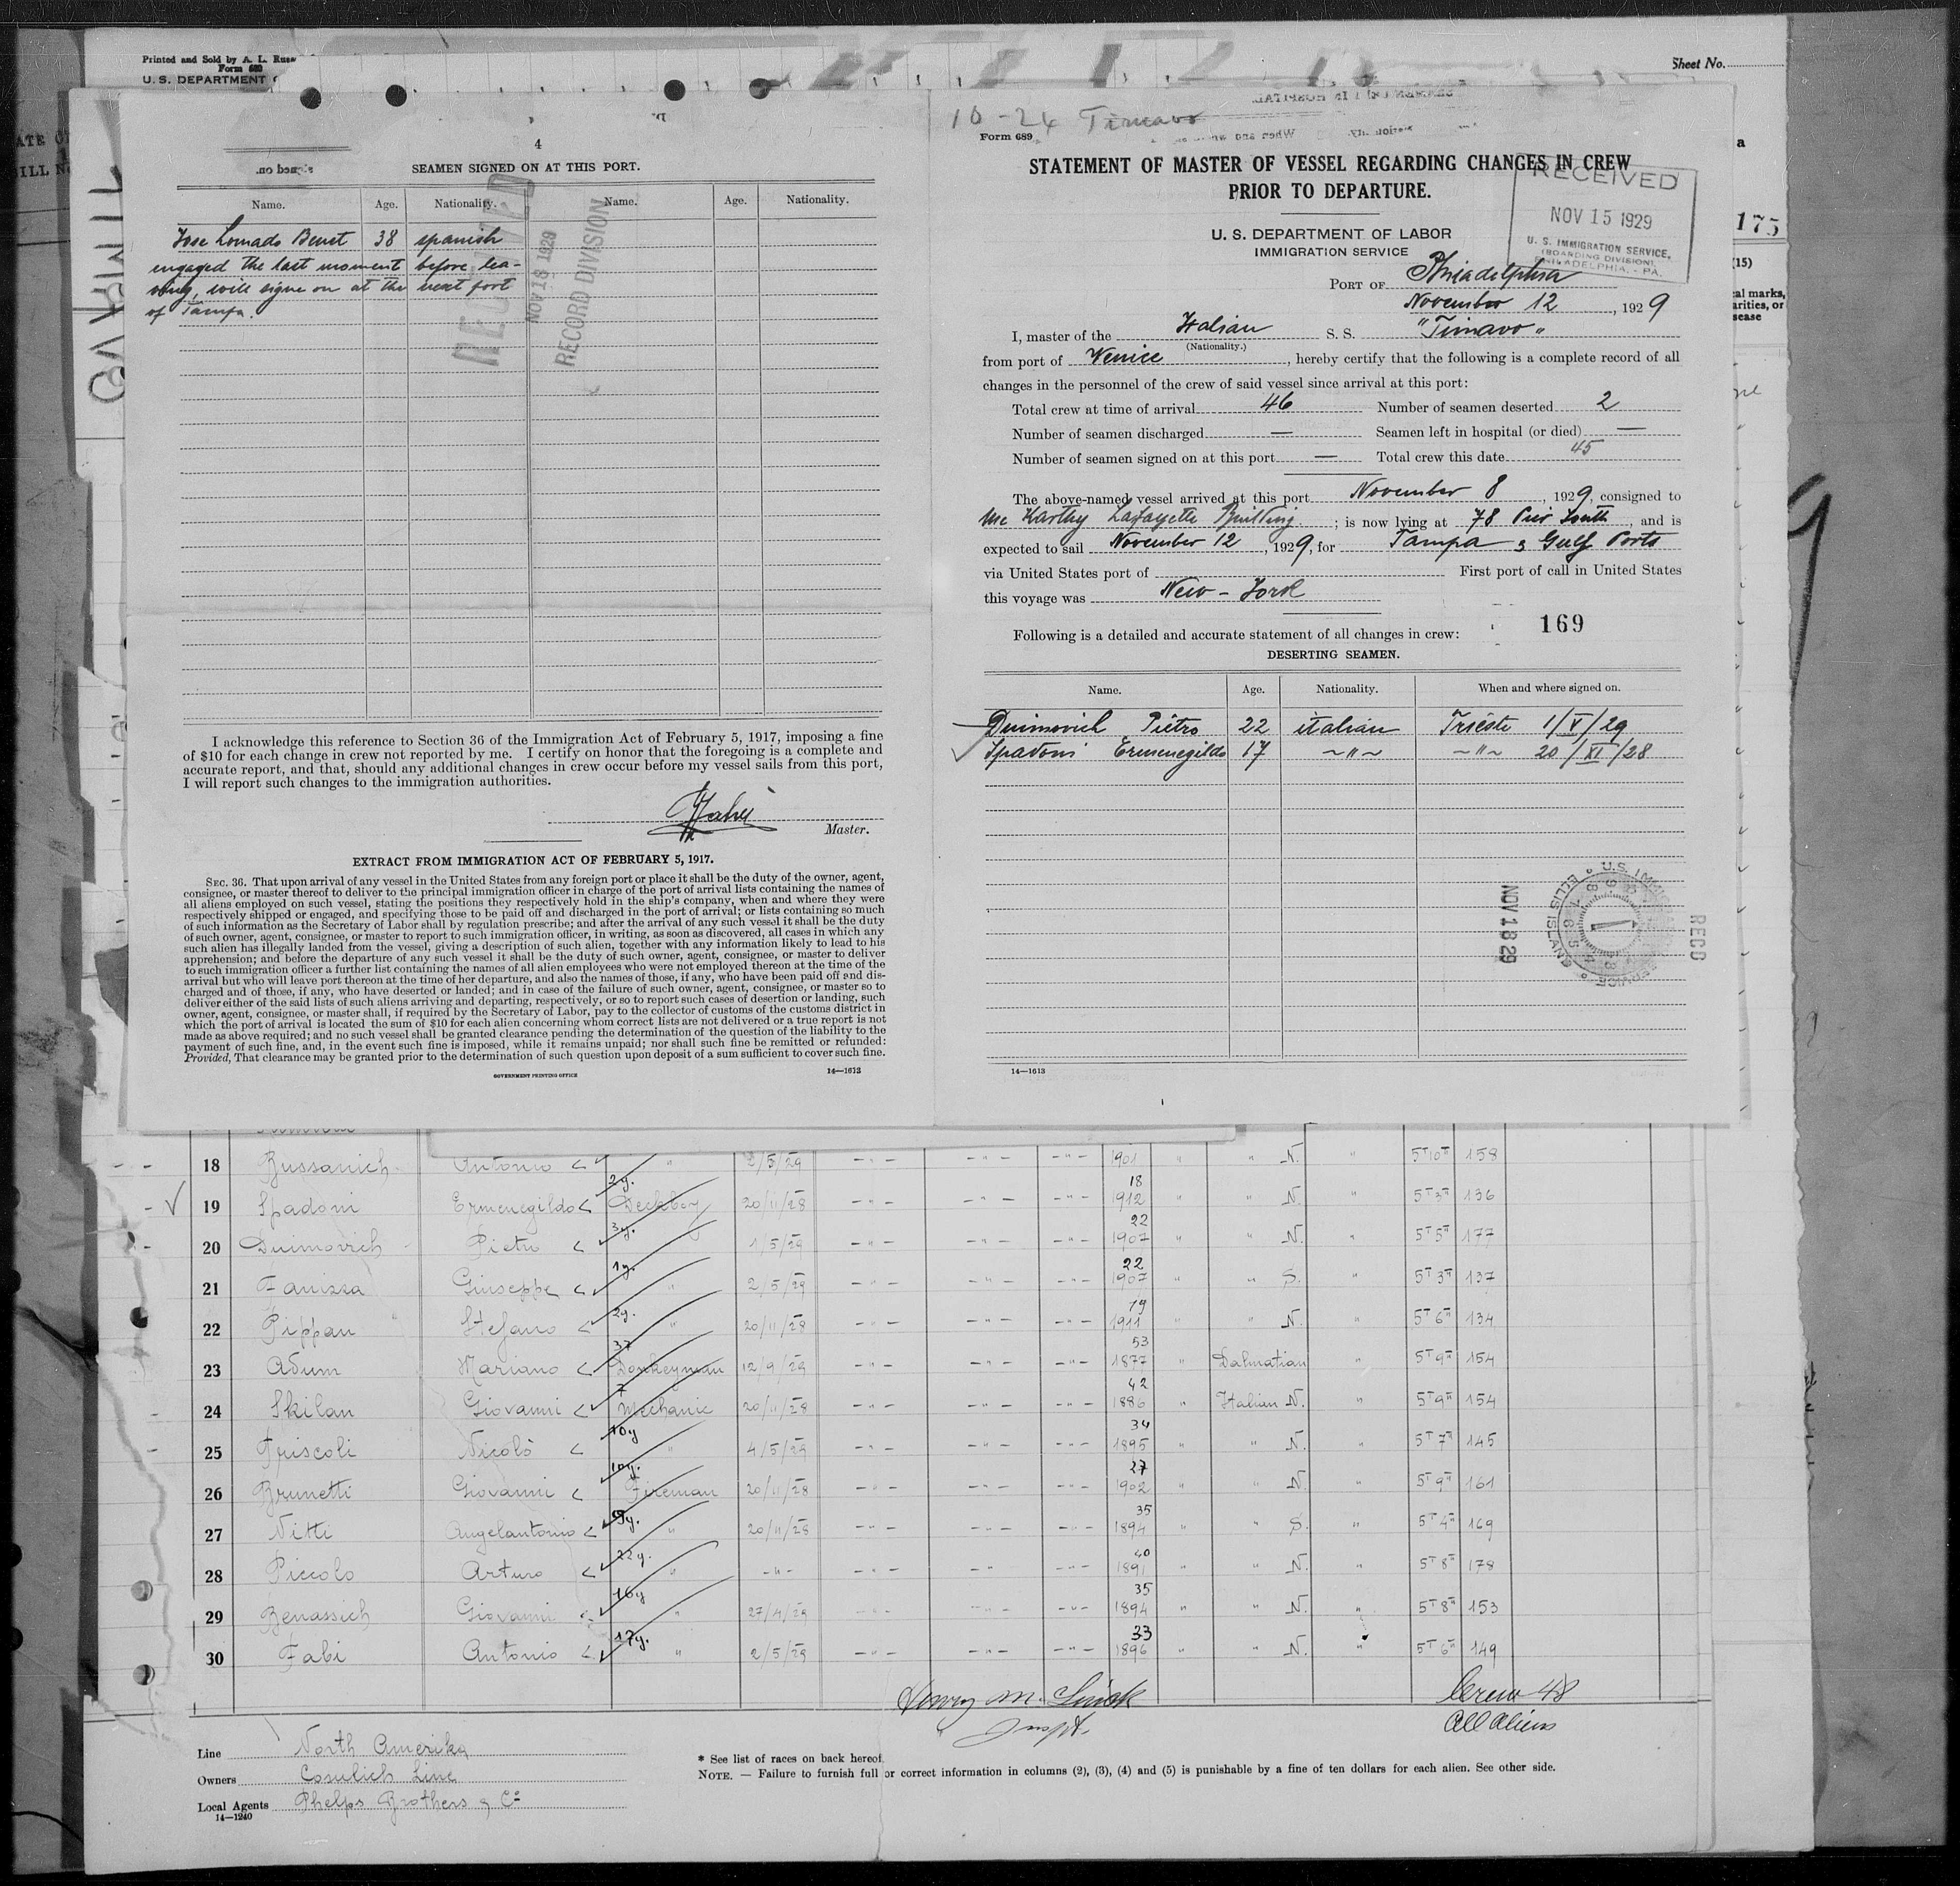 Printed and Sold by A. L. Russ
Form 689
U. S. DEPARTMENT
Sheet No.
4
SEAMEN SIGNED ON AT THIS PORT.
Name. Age. Nationality. Name. Age. Nationality.
Jose Lomado Benet 38 spanish
engaged the last moment before lea-
ving, will signe on at the next port
of Tampa.
RECEIVED
NOV 18 1929
RECORD DIVISION
I acknowledge this reference to Section 36 of the Immigration Act of February 5, 1917, imposing a fine
of $10 for each change in crew not reported by me. I certify on honor that the foregoing is a complete and
accurate report, and that, should any additional changes in crew occur before my vessel sails from this port,
I will report such changes to the immigration authorities.
Master.
EXTRACT FROM IMMIGRATION ACT OF FEBRUARY 5, 1917.
SEC. 36. That upon arrival of any vessel in the United States from any foreign port or place it shall be the duty of the owner, agent,
consignee, or master thereof to deliver to the principal immigration officer in charge of the port of arrival lists containing the names of
all aliens employed on such vessel, stating the positions they respectively hold in the ship's company, when and where they were
respectively shipped or engaged, and specifying those to be paid off and discharged in the port of arrival; or lists containing so much
of such information as the Secretary of Labor shall by regulation prescribe; and after the arrival of any such vessel it shall be the duty
of such owner, agent, consignee, or master to report to such immigration officer, in writing, as soon as discovered, all cases in which any
such alien has illegally landed from the vessel, giving a description of such alien, together with any information likely to lead to his
apprehension; and before the departure of any such vessel it shall be the duty of such owner, agent, consignee, or master to deliver
to such immigration officer a further list containing the names of all alien employees who were not employed thereon at the time of the
arrival but who will leave port thereon at the time of her departure, and also the names of those, if any, who have been paid off and dis-
charged and of those, if any, who have deserted or landed; and in case of the failure of such owner, agent, consignee, or master so to
deliver either of the said lists of such aliens arriving and departing, respectively, or so to report such cases of desertion or landing, such
owner, agent, consignee, or master shall, if required by the Secretary of Labor, pay to the collector of customs of the customs district in
which the port of arrival is located the sum of $10 for each alien concerning whom correct lists are not delivered or a true report is not
made as above required; and no such vessel shall be granted clearance pending the determination of the question of the liability to the
payment of such fine, and, in the event such fine is imposed, while it remains unpaid; nor shall such fine be remitted or refunded:
Provided, That clearance may be granted prior to the determination of such question upon deposit of a sum sufficient to cover such fine.
GOVERNMENT PRINTING OFFICE 14—1613
10-24 Timavo
Form 689
STATEMENT OF MASTER OF VESSEL REGARDING CHANGES IN CREW
PRIOR TO DEPARTURE.
U. S. DEPARTMENT OF LABOR
IMMIGRATION SERVICE
RECEIVED
NOV 15 1929
U. S. IMMIGRATION SERVICE,
(BOARDING DIVISION),
PHILADELPHIA, - PA.
175
(15)
PORT OF Phiadelphia
November 12, 1929
I, master of the Italian S. S. "Timavo"
(Nationality.)
from port of Venice, hereby certify that the following is a complete record of all
changes in the personnel of the crew of said vessel since arrival at this port:
Total crew at time of arrival 46 Number of seamen deserted 2
Number of seamen discharged — Seamen left in hospital (or died) —
Number of seamen signed on at this port — Total crew this date 45
The above-named vessel arrived at this port November 8, 1929, consigned to
Mc Karthy Lafayette Building; is now lying at 78 Pier South, and is
expected to sail November 12, 1929, for Tampa & Gulf Ports
via United States port of First port of call in United States
this voyage was New-York
169
Following is a detailed and accurate statement of all changes in crew:
DESERTING SEAMEN.
Name. Age. Nationality. When and where signed on.
Duimovich Pietro 22 italian Trieste 1/V/29
Spadoni Ermenegildo 17 ~"~ ~"~ 20/XI/28
REC'D
NOV 18 29
ELLIS ISLAND
14—1613
18 Bussanich Antonio " 2/5/29 -"- -"- -"- 1901 " " N. " 5'10" 158
19 Spadoni Ermenegildo 2y. Deckboy 20/11/28 -"- -"- -"- 18 1912 " " N. " 5'3" 136
20 Duimovich Pietro 3y. 1/5/29 -"- -"- -"- 22 1907 " " N. " 5'5" 177
21 Fanizza Giuseppe 1y. " 2/5/29 -"- -"- -"- 22 1907 " " S. " 5'3" 137
22 Pippan Stefano 2y. " 20/11/28 -"- -"- -"- 19 1911 " " N. " 5'6" 134
23 Adum Mariano 37 Donkeyman 12/9/29 -"- -"- -"- 53 1877 " Dalmatian " 5'9" 154
24 Skilan Giovanni 7 Mechanic 20/11/28 -"- -"- -"- 42 1886 " Italian N. " 5'9" 154
25 Friscoli Nicolò 10y " 4/5/29 -"- -"- -"- 34 1895 " " N. " 5'7" 145
26 Brunetti Giovanni 10y. Fireman 20/11/28 -"- -"- -"- 27 1902 " " N. " 5'9" 161
27 Nitti Angelantonio 9y. " 20/11/28 -"- -"- -"- 35 1894 " " S. " 5'4" 169
28 Piccolo Arturo 22y. " -"- -"- -"- -"- 40 1891 " " N. " 5'8" 178
29 Benassich Giovanni 16y " 27/4/29 -"- -"- -"- 35 1894 " " N. " 5'8" 153
30 Fabi Antonio 17y. " 2/5/29 -"- -"- -"- 33 1896 " " N. " 5'6" 149
Crew 48
Inspt. All aliens
Line North Amerika
Owners Cosulich Line
Local Agents Phelps Brothers & Co
14—1240
* See list of races on back hereof.
NOTE. — Failure to furnish full or correct information in columns (2), (3), (4) and (5) is punishable by a fine of ten dollars for each alien. See other side.